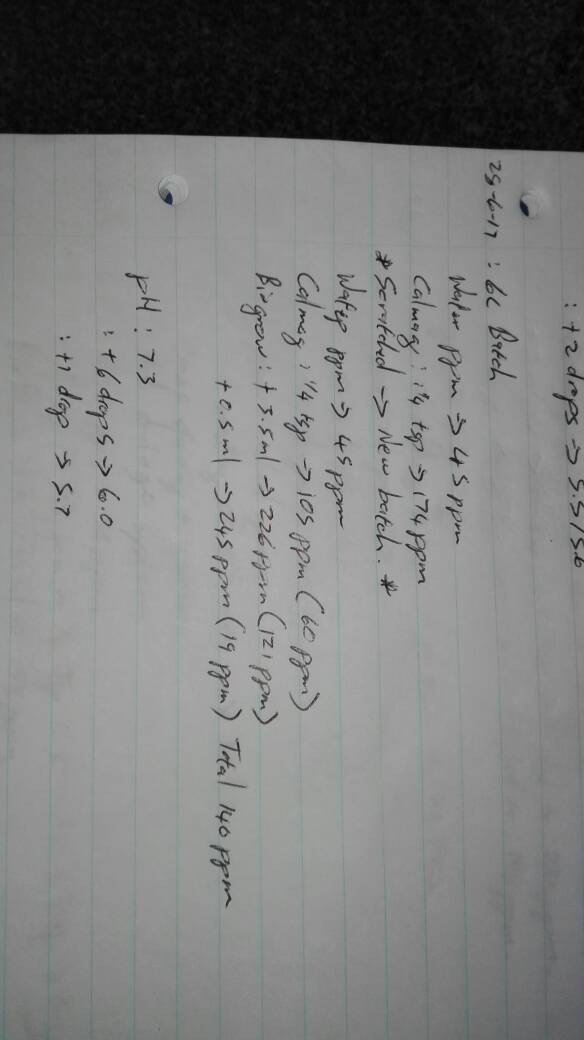 : +2 drops → 5.5/5.6
29-6-17 : 6L Batch
Water ppm → 45 ppm
Calmag : 1/4 tsp → 174 ppm
* Scratched → New batch. *
Water ppm → 45 ppm
Calmag : 1/4 tsp → 105 ppm (60 ppm)
Biogrow : + 3.5 ml → 226 ppm (121 ppm)
+ 0.5 ml → 245 ppm (19 ppm) Total 140 ppm
pH : 7.3
: + 6 drops → 6.0
: +1 drop → 5.7